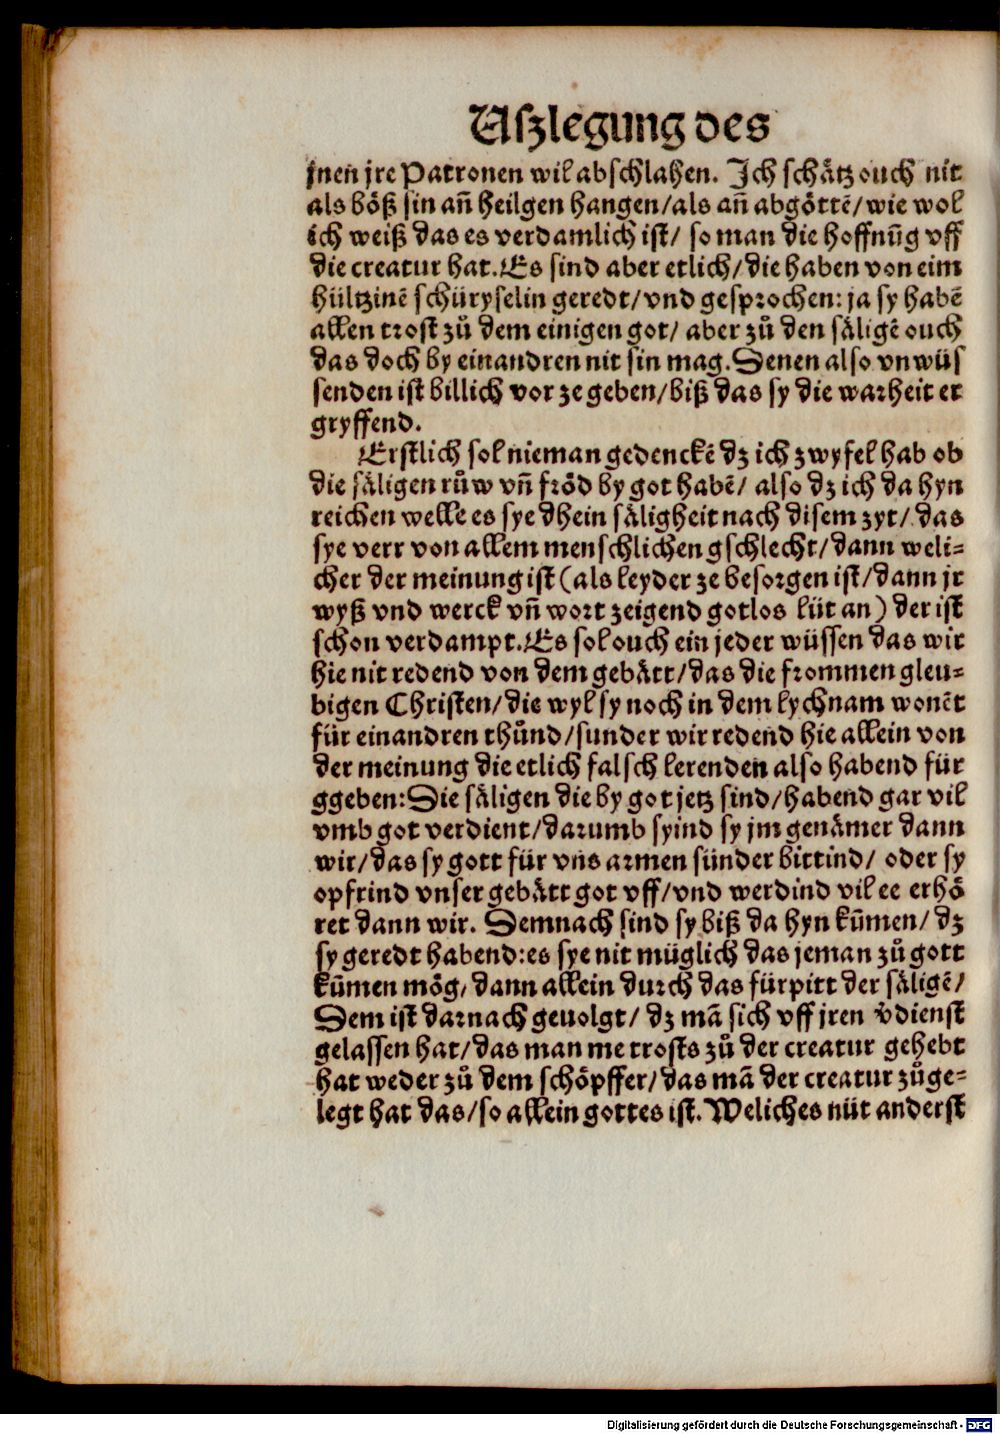 Uſzlegung des
jnen jre Patronen wil abſchlahen. Ich ſchätz ouch nit
als böß ſin añ heilgen hangen/als añ abgöttē/wie wol
ich weiß das es verdamlich iſt/ ſo man die hoffnūg vff
die creatur hat. Es ſind aber etlich/die haben von eim
hültzinē ſchüryſelin geredt/vnd geſprochen: ja ſy habē
allen troſt zů dem einigen got/ aber zů den ſäligē ouch
das doch by einandren nit ſin mag. Denen alſo vnwüſ
ſenden iſt billich vor ze geben/biß das ſy die warheit er
gryffend.
Erſtlich ſol nieman gedenckē dz ich zwyfel hab ob
die ſäligen růw vñ fröd by got habē/ alſo dz ich da hyn
reichen welle es ſye dhein ſäligheit nach diſem zyt/ das
ſye verr von allem menſchlichen gſchlecht/dann weli-
cher der meinung iſt (als leyder ze beſorgen iſt/dann jr
wyß vnd werck vñ wort zeigend gotlos lüt an) der iſt
ſchon verdampt. Es ſol ouch ein jeder wüſſen das wir
hie nit redend von dem gebätt/das die frommen gleu-
bigen Chriſten/die wyl ſy noch in dem lychnam wonēt
für einandren thůnd/ſunder wir redend hie allein von
der meinung die etlich falſch lerenden alſo habend für
ggeben: Die ſäligen die by got jetz ſind/habend gar vil
vmb got verdient/darumb ſyind ſy jm genämer dann
wir/das ſy gott für vns armen ſünder bittind/ oder ſy
opfrind vnſer gebätt got vff/vnd werdind vil ee erhö
ret dann wir. Demnach ſind ſy biß da hyn kūmen/ dz
ſy geredt habend: es ſye nit müglich das jeman zů gott
kūmen mög, dann allein durch das fürpitt der ſäligē/
Dem iſt darnach geuolgt/ dz mā ſich vff jren v̄dienſt
gelaſſen hat/das man me troſts zů der creatur gehebt
hat weder zů dem ſchöpffer/das mā der creatur zůge-
legt hat das/ſo allein gottes iſt. Weliches nüt anderſt
Digitalisierung gefördert durch die Deutsche Forschungsgemeinschaft - DFG